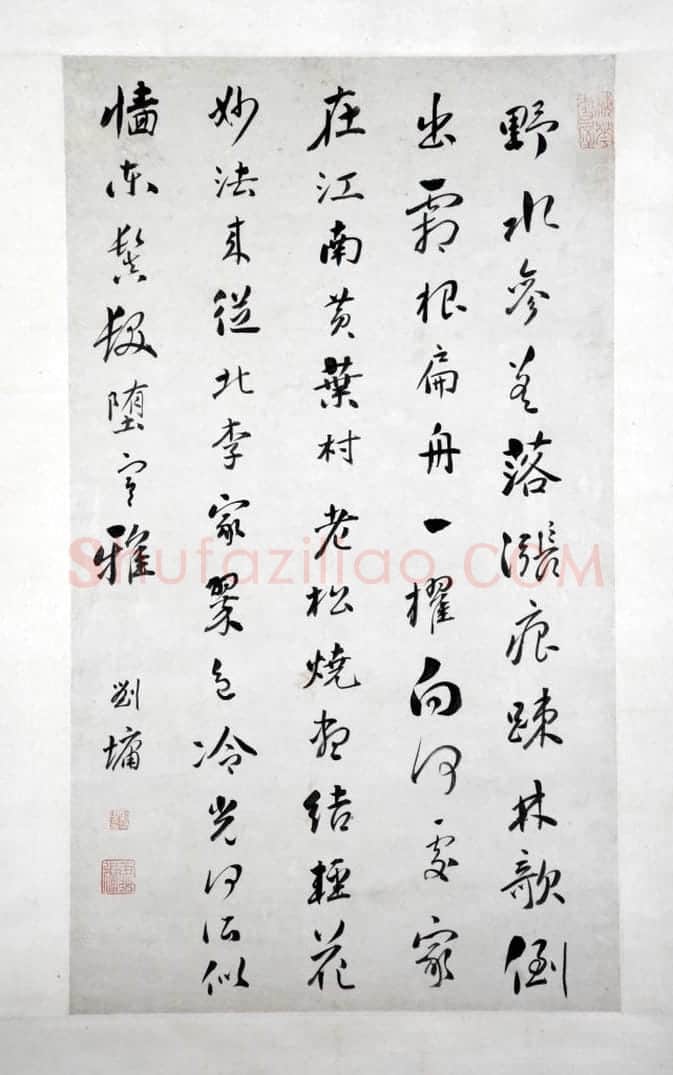 野水參差落漲痕踈林欹倒
出霜根扁舟一櫂向何處家
在江南黃葉村老松燒盡結輕花
妙法來從北李家翠色冷光何所似
墻東鬒髮墮寒雅
劉墉
Shufaziliao.COM